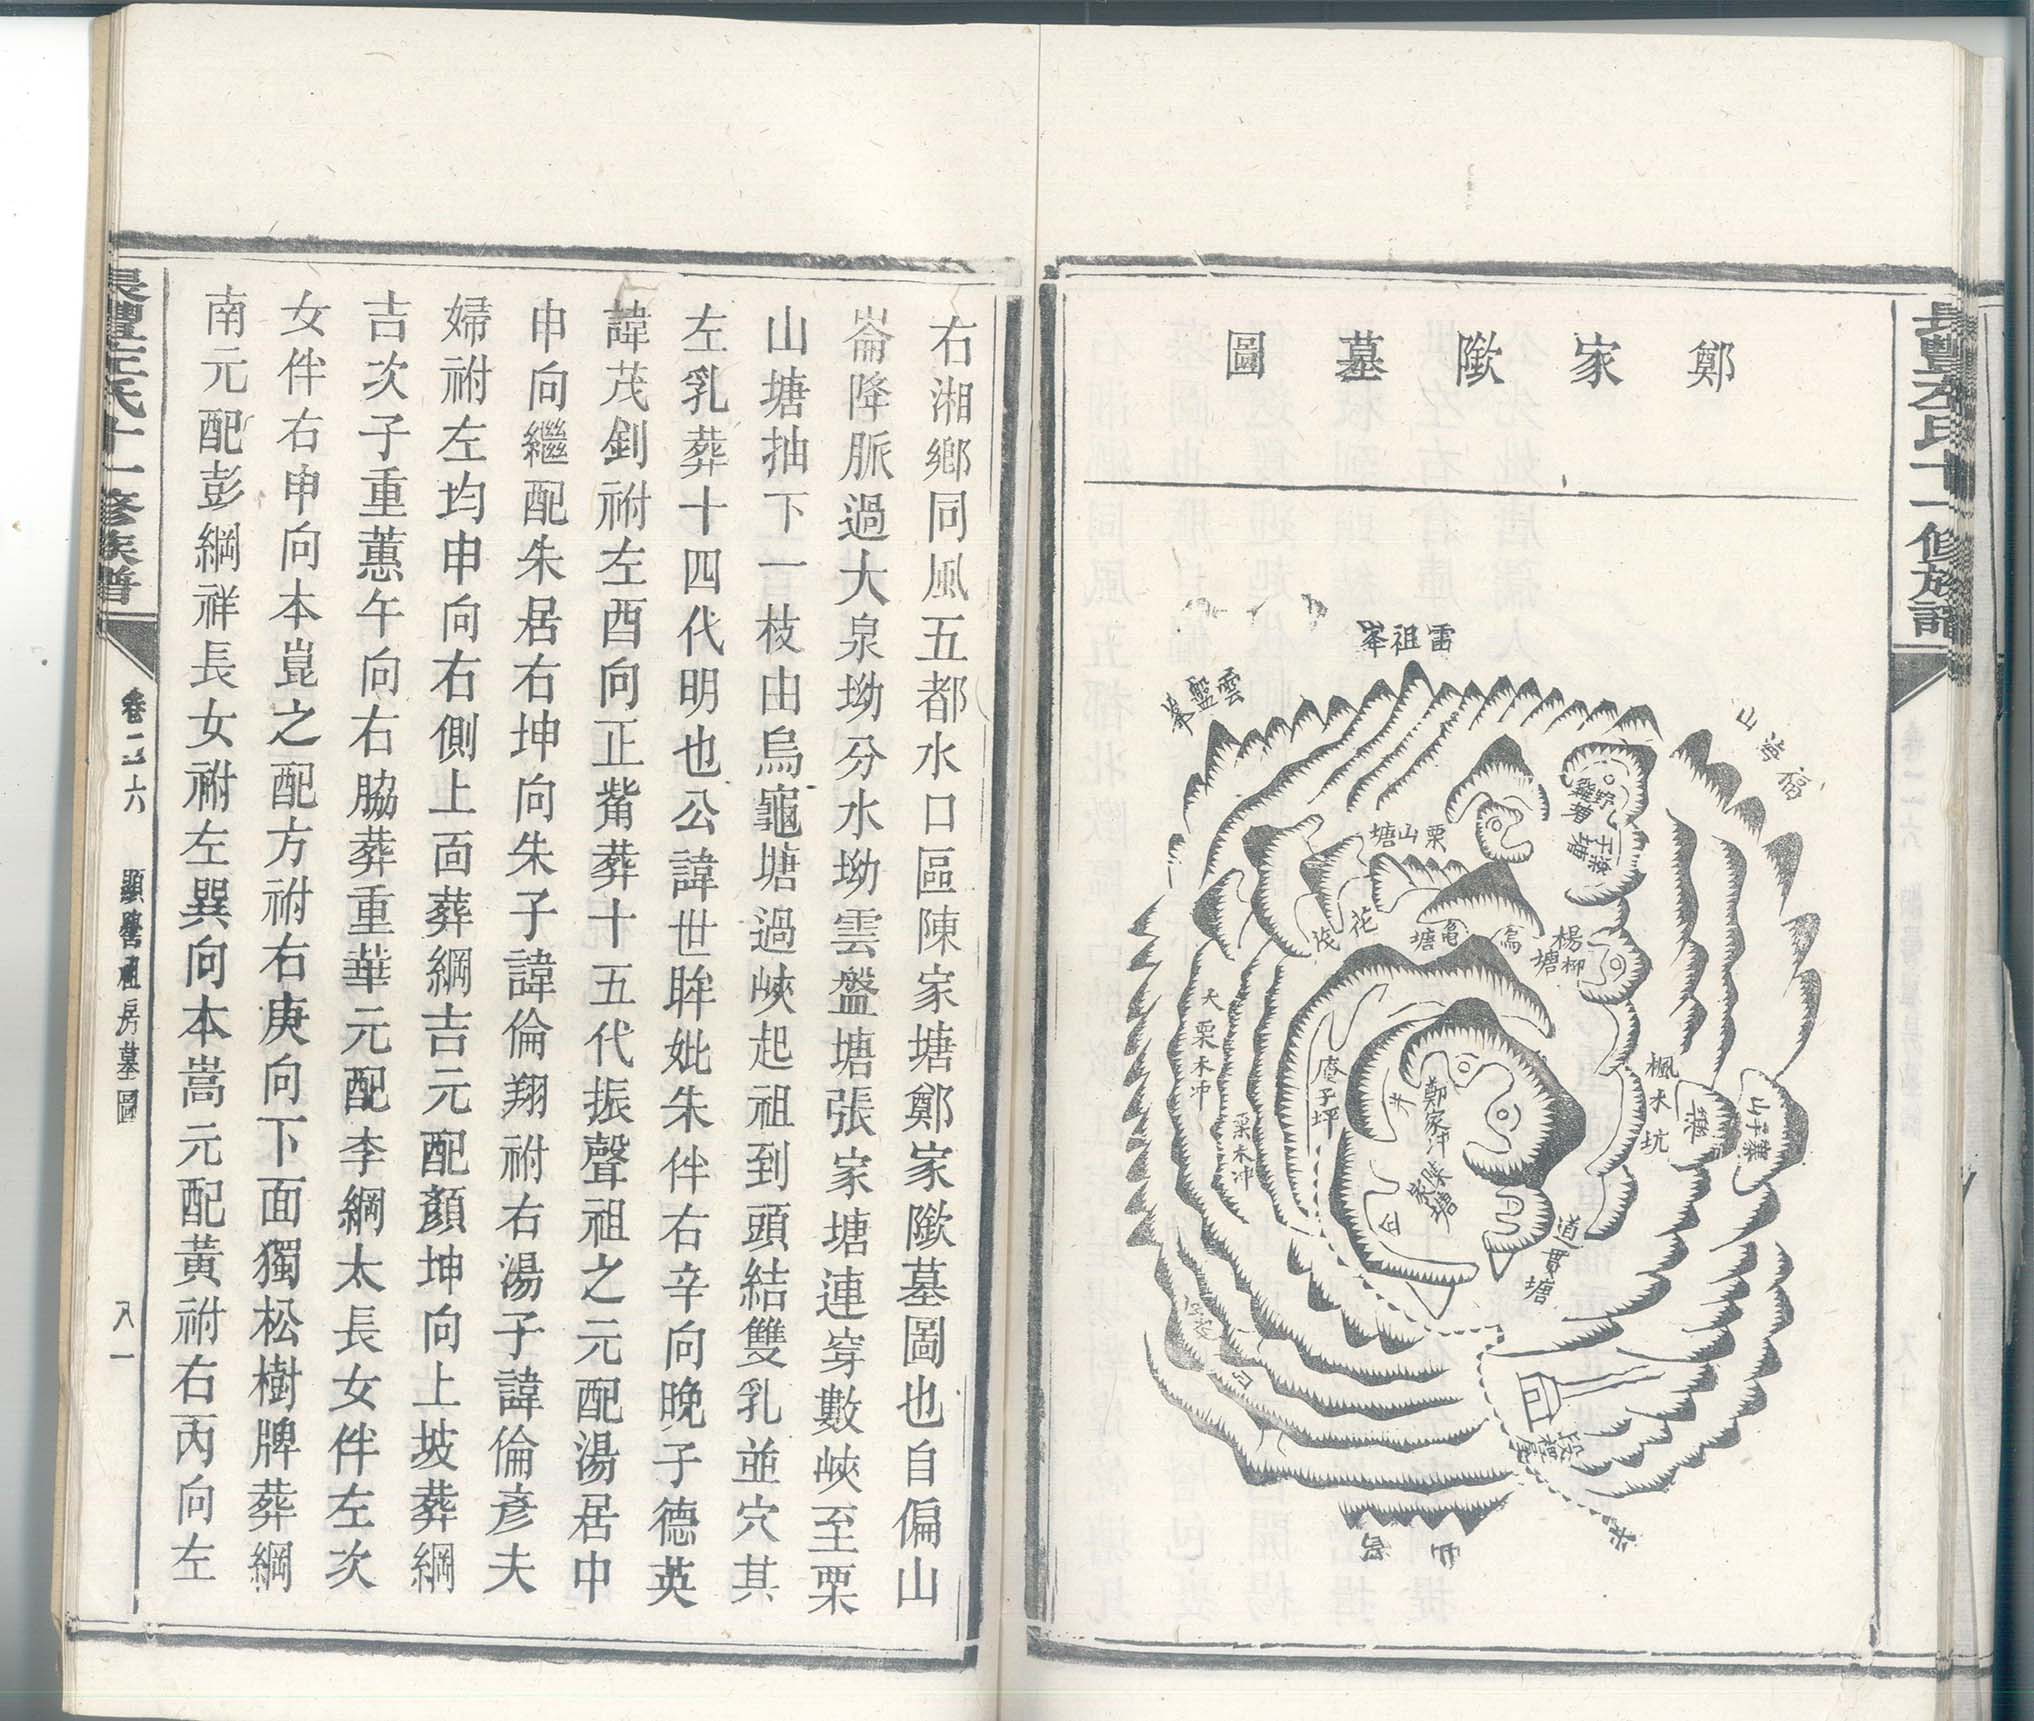 鄭家歟墓圖
雷祖峯
雲盤峯
福海山
栗山塘
茂花
烏龜塘
楊柳塘
大栗木冲
栗木冲
庵子坪
鄭家冲
楓木坑
道貫塘
右湘鄉同風五都水口區陳家塘鄭家歟墓圖也自偏山
崙降脈過大泉坳分水坳雲盤塘張家塘連穿數峽至栗
山塘抽下一枝由烏龜塘過峽起祖到頭結雙乳並穴其
左乳葬十四代明也公諱世眸妣朱伴右辛向晚子德英
諱茂釗祔左酉向正觜葬十五代振聲祖之元配湯居中
申向繼配朱居右坤向朱子諱倫翔祔右湯子諱倫彥夫
婦祔左均申向右側上面葬綱吉元配顏坤向上坡葬綱
吉次子重蕙午向右脇葬重華元配李綱太長女伴左次
女伴右申向本崑之配方祔右庚向下面獨松樹牌葬綱
南元配彭綱祥長女祔左巽向本嵩元配黃祔右丙向左
左氏十一修族譜
卷二六
房墓圖
八一